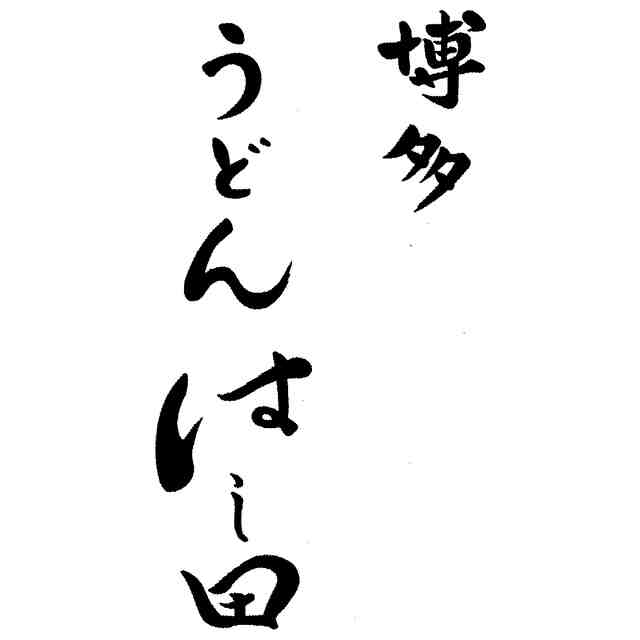 博多
うどんはし田